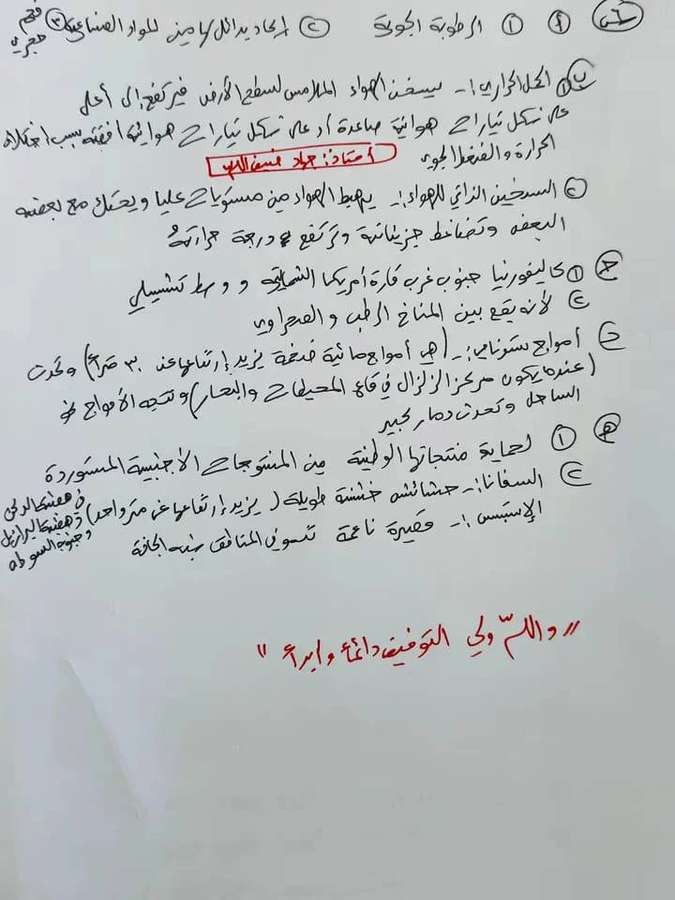 س٦ أ ١ الرطوبة الجوية ٢ إيجاد بدائل للمواد الصناعية ٣ فحم حجري
ب ١ الحمل الحراري :- يسخن الهواء الملامس لسطح الأرض فيرتفع الى أعلى
على شكل تيارات هوائية صاعدة أو على شكل تيارات هوائية افقية بسبب اختلاف
الحرارة والضغط الجوي
أستاذ: جواد
٢ التسخين الذاتي للهواء :- يهبط الهواء من مستويات عليا ويحتك مع بعضه
البعض وتضاغط جزيئاتة وترتفع درجة حرارتة
ج ١ كاليفورنيا جنوب غرب قارة أمريكا الشمالية و وسط تشيلي
٢ لأنه يقع بين المناخ الرطب و الصحراوي
د أمواج تسونامي :- (هي أمواج مائية ضخمة يزيد إرتفاعها عن ٣٠ متراً) وتحدث
(عندما يكون مركز الزلزال في قاع المحيطات والبحار) وتتجه الأمواج نحو
الساحل وتحدث دمار كبير
هـ ١ لحماية منتجاتها الوطنية من المنتوجات الاجنبية المستوردة
٢ السفانا :- حشائش خشنة طويلة (يزيد إرتفاعها عن متر واحد) في هضبة الدكن وهضبة البرازيل وجنوب السودان
الإستبس :- قصيرة ناعمة تسود في المناطق شبه الجافة
"والله ولي التوفيق دائماً وابداً"